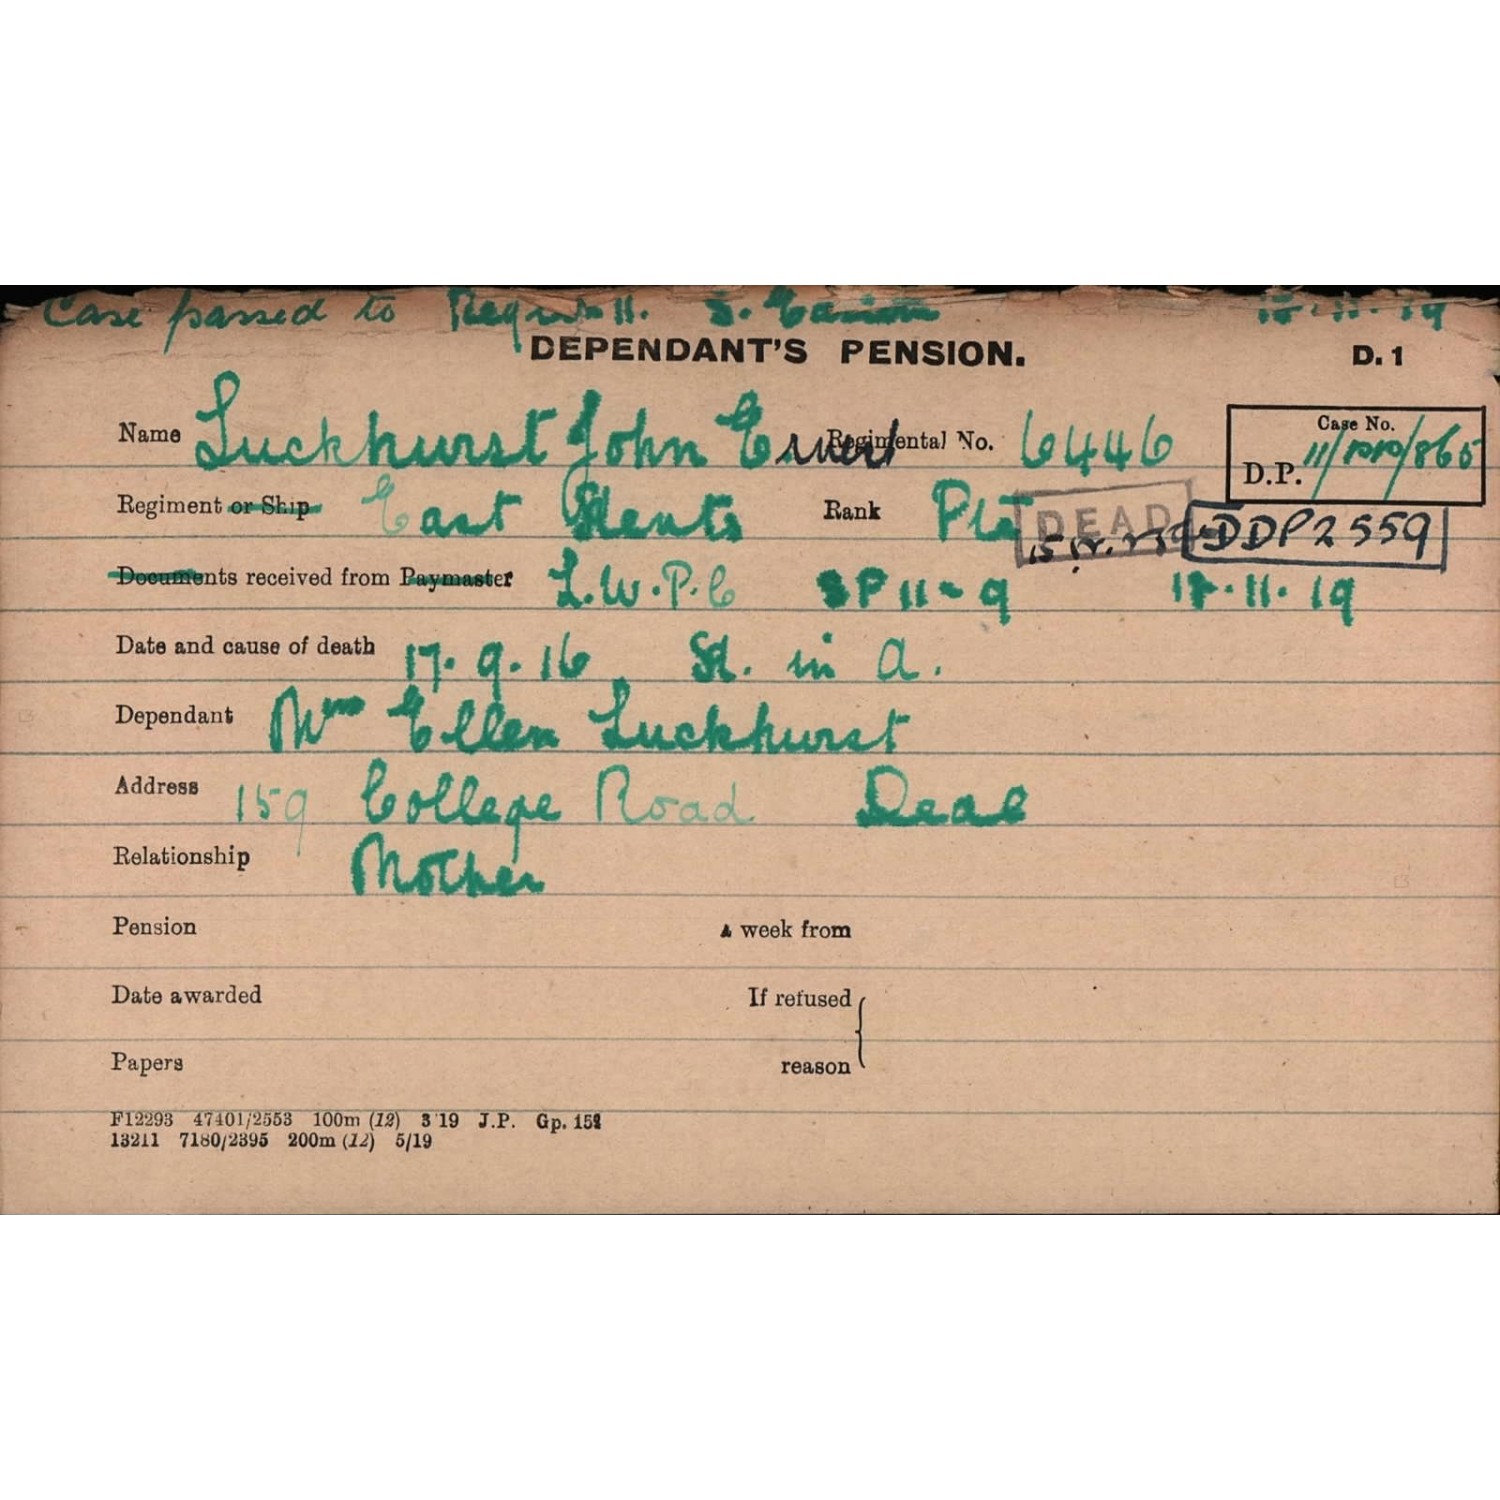 Case passed to Region 11. S. 18.11.19
DEPENDANT'S PENSION. D. 1
Name Luckhurst John Ernest Regimental No. 6446
Case No.
D.P. 11/DP/865
Regiment or Ship East Kents Rank Pte DEAD DDP2559
Documents received from Paymaster L.W.P.C SP 11-9 18.11.19
Date and cause of death 17.9.16 Kd. in A.
Dependant Mrs Ellen Luckhurst
Address 159 College Road Deal
Relationship Mother
Pension a week from
Date awarded If refused
Papers reason
F12293 47401/2553 100m (12) 3'19 J.P. Gp. 152
13211 7180/2395 200m (12) 5/19